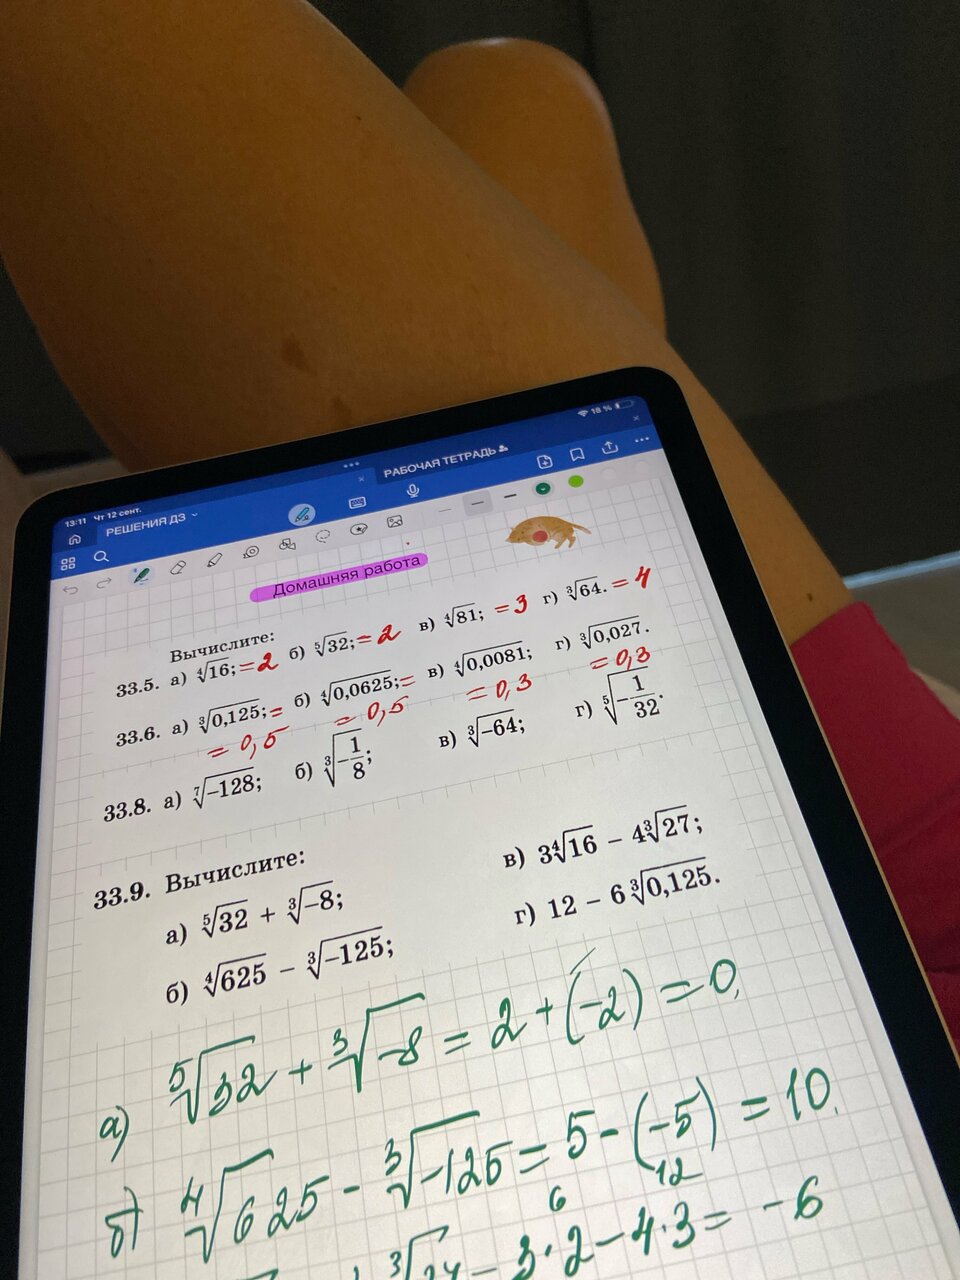 13:11 Чт 12 сент.
18 %
РЕШЕНИЯ ДЗ
РАБОЧАЯ ТЕТРАДЬ
Домашняя работа
Вычислите:
33.5. а) ⁴√16; = 2 б) ⁵√32; = 2 в) ⁴√81; = 3 г) ³√64. = 4
33.6. а) ³√0,125; = б) ⁴√0,0625; = в) ⁴√0,0081; г) ³√0,027.
= 0,5 = 0,5 = 0,3 = 0,3
33.8. а) ⁷√-128; б) ³√-1/8; в) ³√-64; г) ⁵√-1/32.
33.9. Вычислите:
а) ⁵√32 + ³√-8;
б) ⁴√625 – ³√-125;
в) 3⁴√16 – 4³√27;
г) 12 – 6³√0,125.
а) ⁵√32 + ³√-8 = 2 + (-2) = 0.
б) ⁴√625 - ³√-125 = 5 - (-5) = 10.
6 12
3·2 - 4·3 = -6